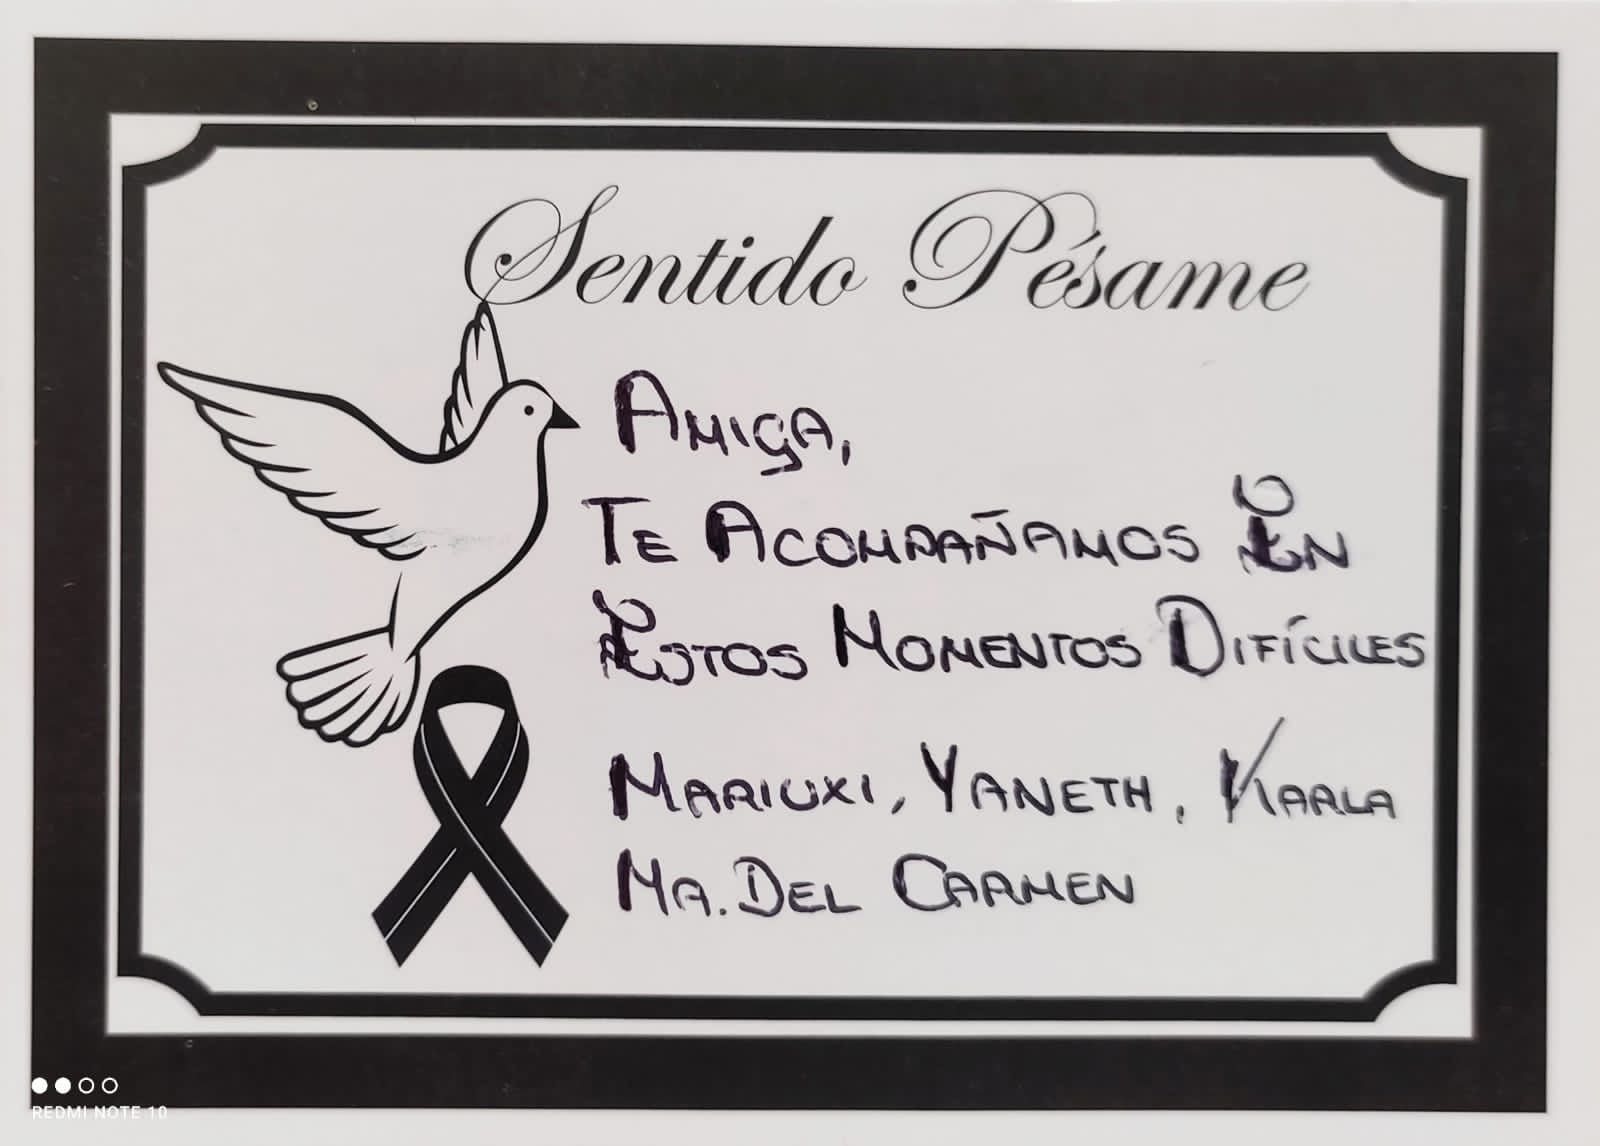 Sentido Pésame
AMIGA,
TE ACOMPAÑAMOS EN
ESTOS MOMENTOS DIFÍCILES
MARIUXI, YANETH, KARLA
MA. DEL CARMEN
REDMI NOTE 10